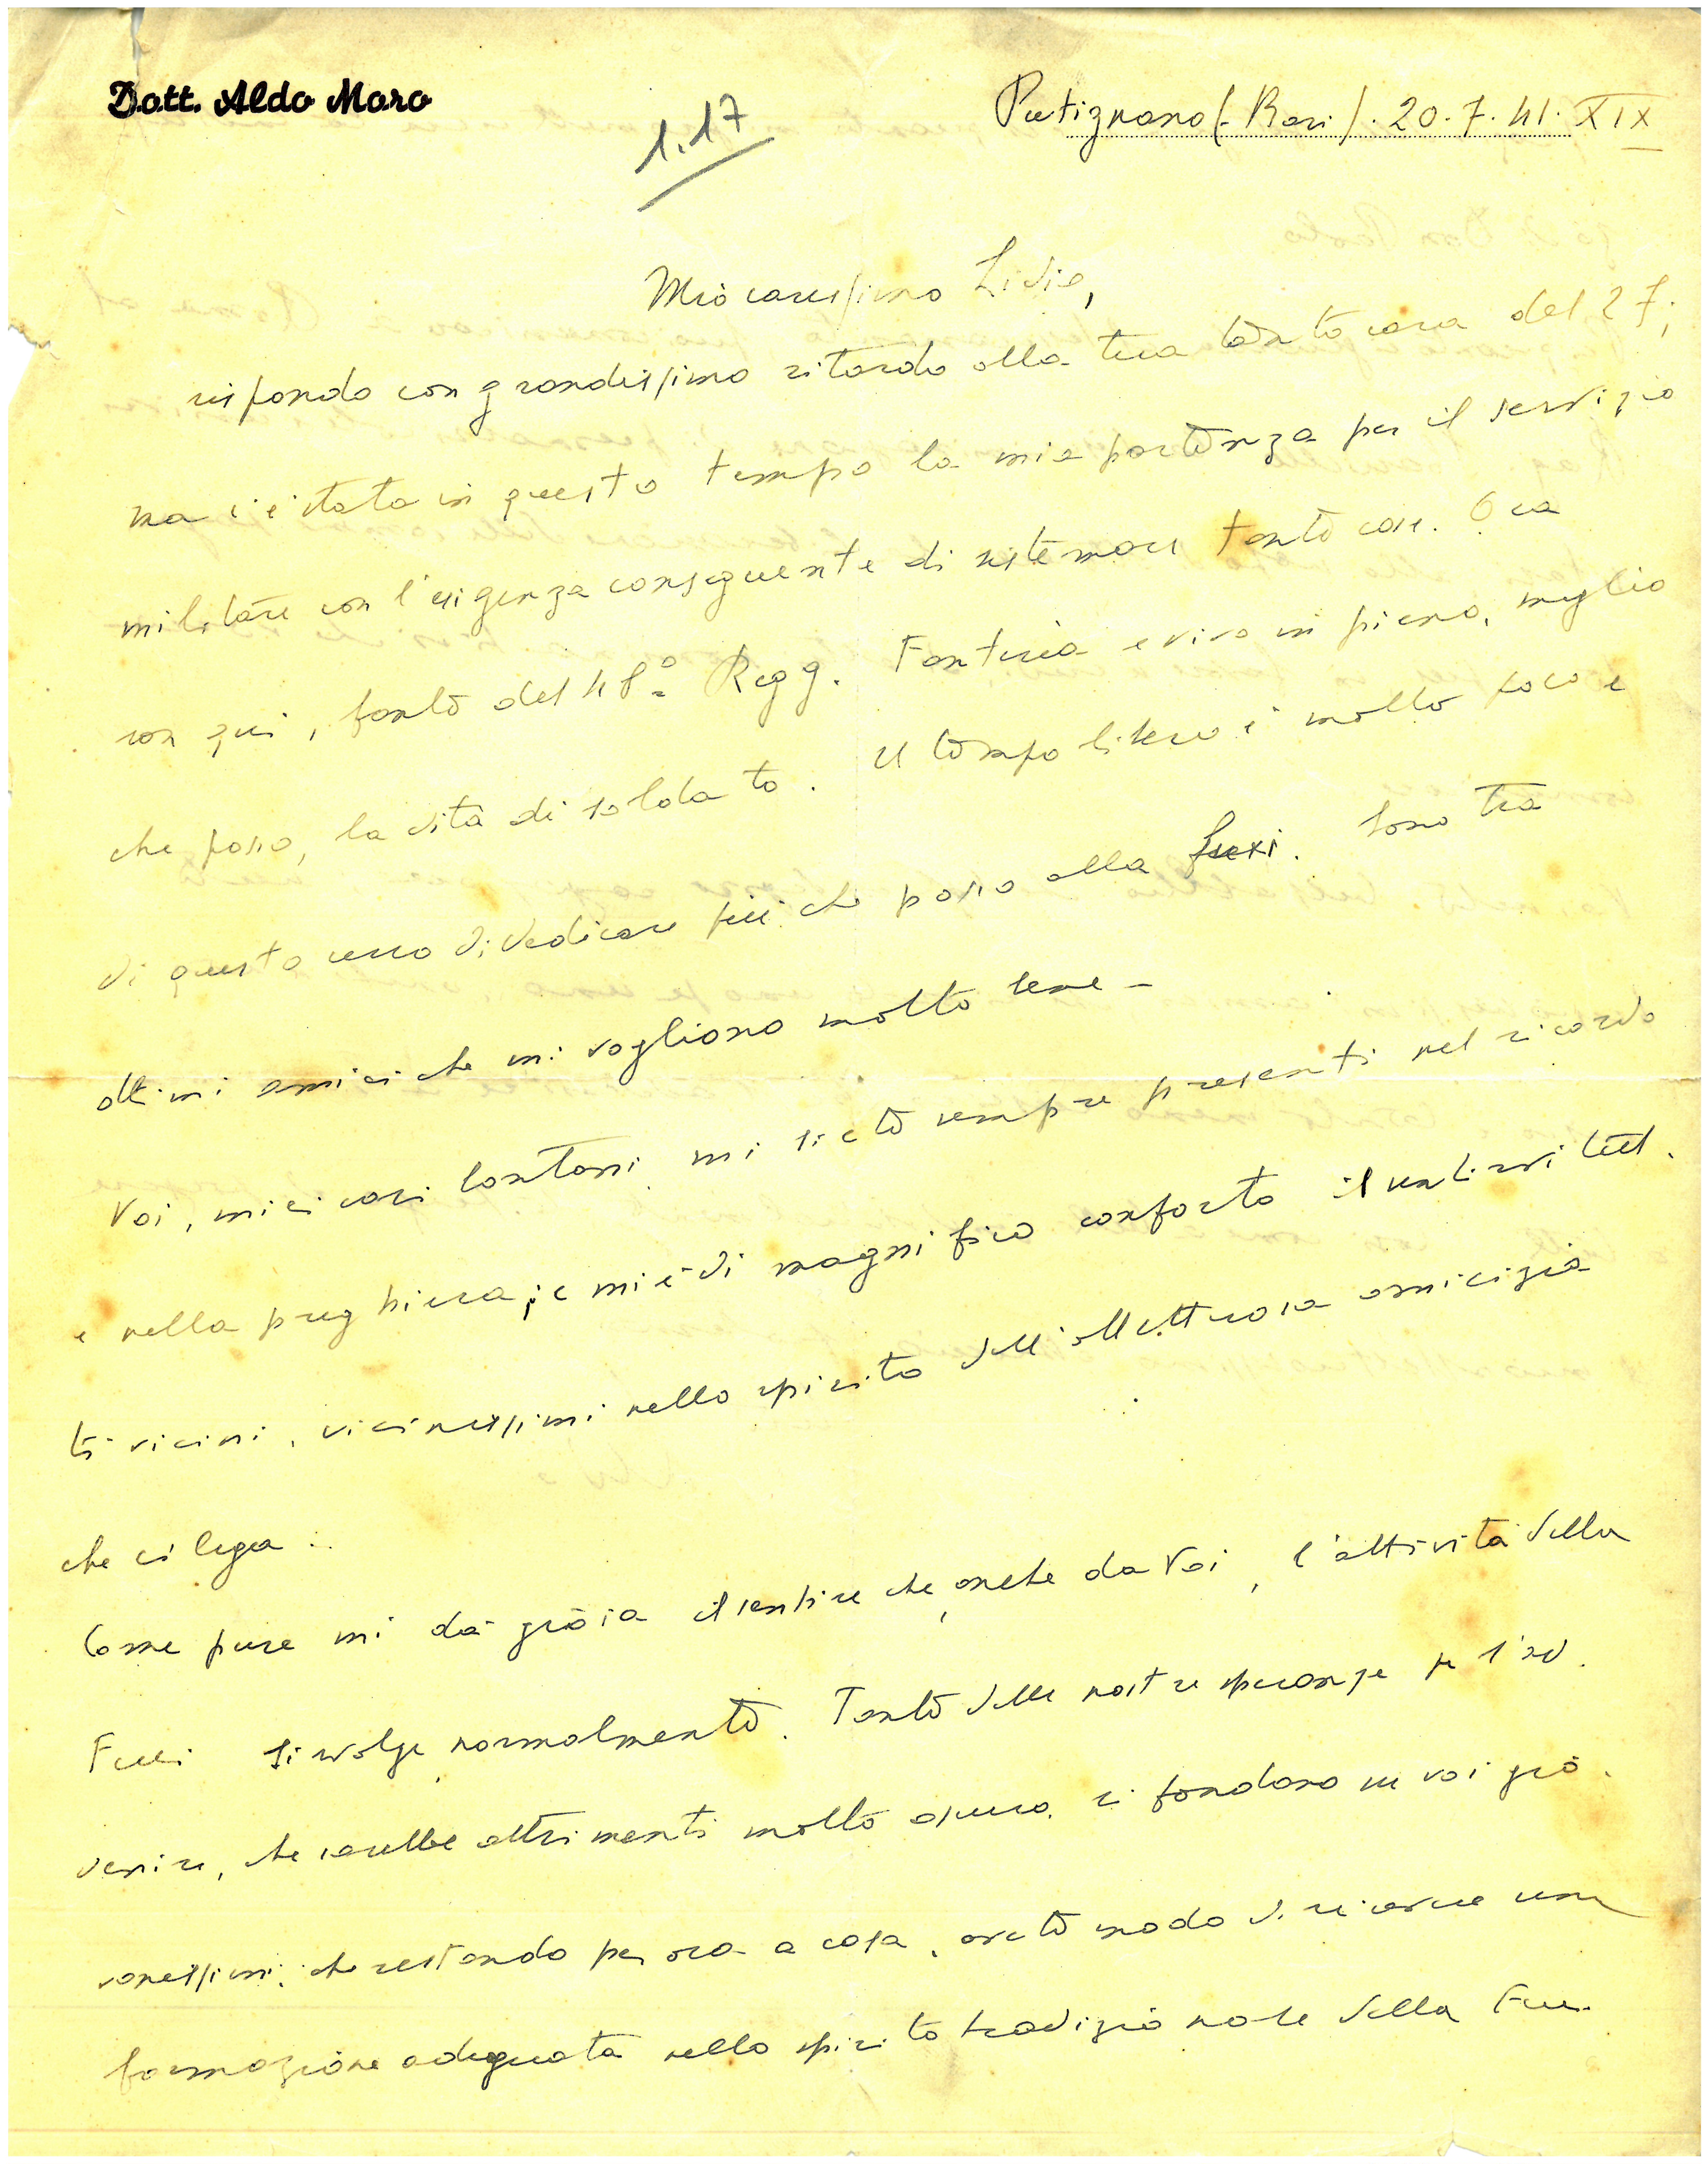 Dott. Aldo Moro
1.17
Putignano (Bari). 20.7.41. XIX
Mio carissimo Livio,
rispondo con grandissimo ritardo alla tua tanto cara del 27;
ma c'è stata in questo tempo la mia partenza per il servizio
militare con l'esigenza conseguente di sistemare tante cose. Ora
son qui, fante del 48° Regg. Fanteria e vivo in pieno, meglio
che posso, la vita di soldato. Il tempo libero è molto poco e
di questo cerco di dedicare più che posso alla Fuci. Sono tra
ottimi amici che mi vogliono molto bene -
Voi, miei cari lontani, mi siete sempre presenti nel ricordo
e nella preghiera; e mi è di magnifico conforto il sentirvi tut.
ti vicini, vicinissimi nello spirito dell'affettuosa amicizia
che ci lega.
Come pure mi dà gioia il sentire che, anche da Voi, l'attività della
Fuci si svolge normalmente. Tante delle nostre speranze per l'av.
venire, che sarebbe altrimenti molto oscuro, si fondano su voi gio.
vanissimi, che restando per ora a casa, avete modo di ricevere una
formazione adeguata nello spirito tradizionale della Fuci.